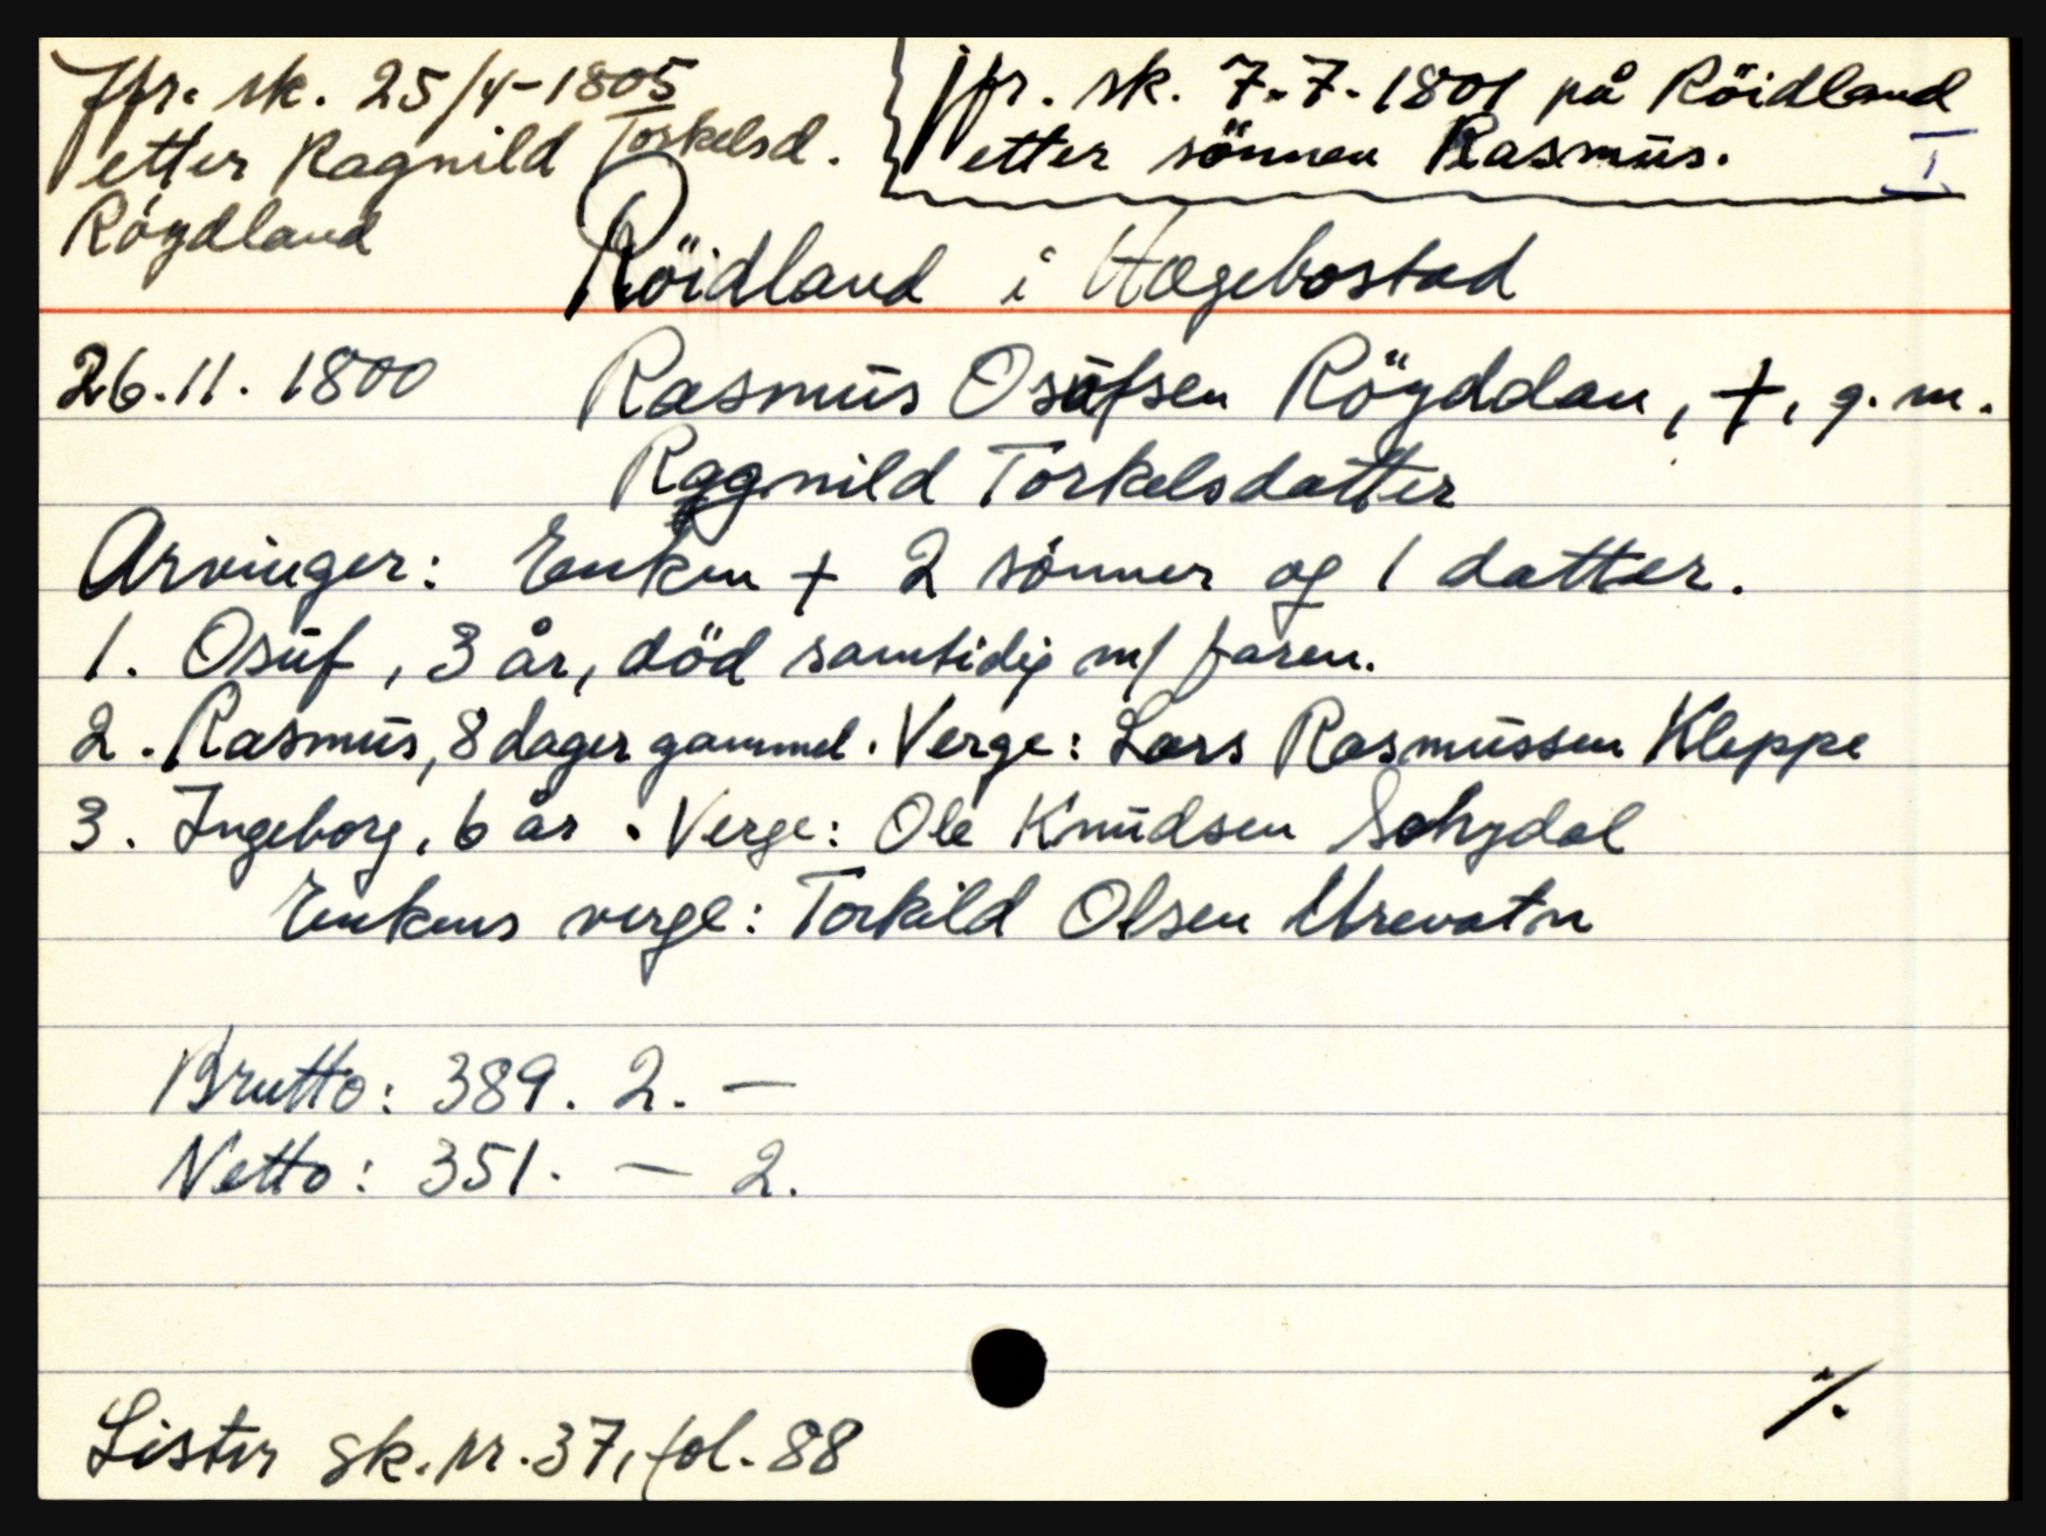 Jfr. sk. 25/4-1805
etter Ragnild Torkelsd.
Röydland
jfr. sk. 7.7.1801 på Röidland
etter sönnen Rasmus.
I
Röidland i Hægebostad
26.11.1800 Rasmus Osufsen Röyddan, †, g.m.
Ragnild Torkelsdatter
Arvinger: Enken + 2 sönner og 1 datter.
1. Osuf, 3 år, död samtidig m/ faren.
2. Rasmus, 8 dager gammel. Verge: Lars Rasmussen Kleppe
3. Ingeborg, 6 år. Verge: Ole Knudsen Schydal
Enkens verge: Torkild Olsen Urevatn
Brutto: 389. 2. —
Netto: 351. — 2.
./.
Lister sk.nr. 37, fol. 88